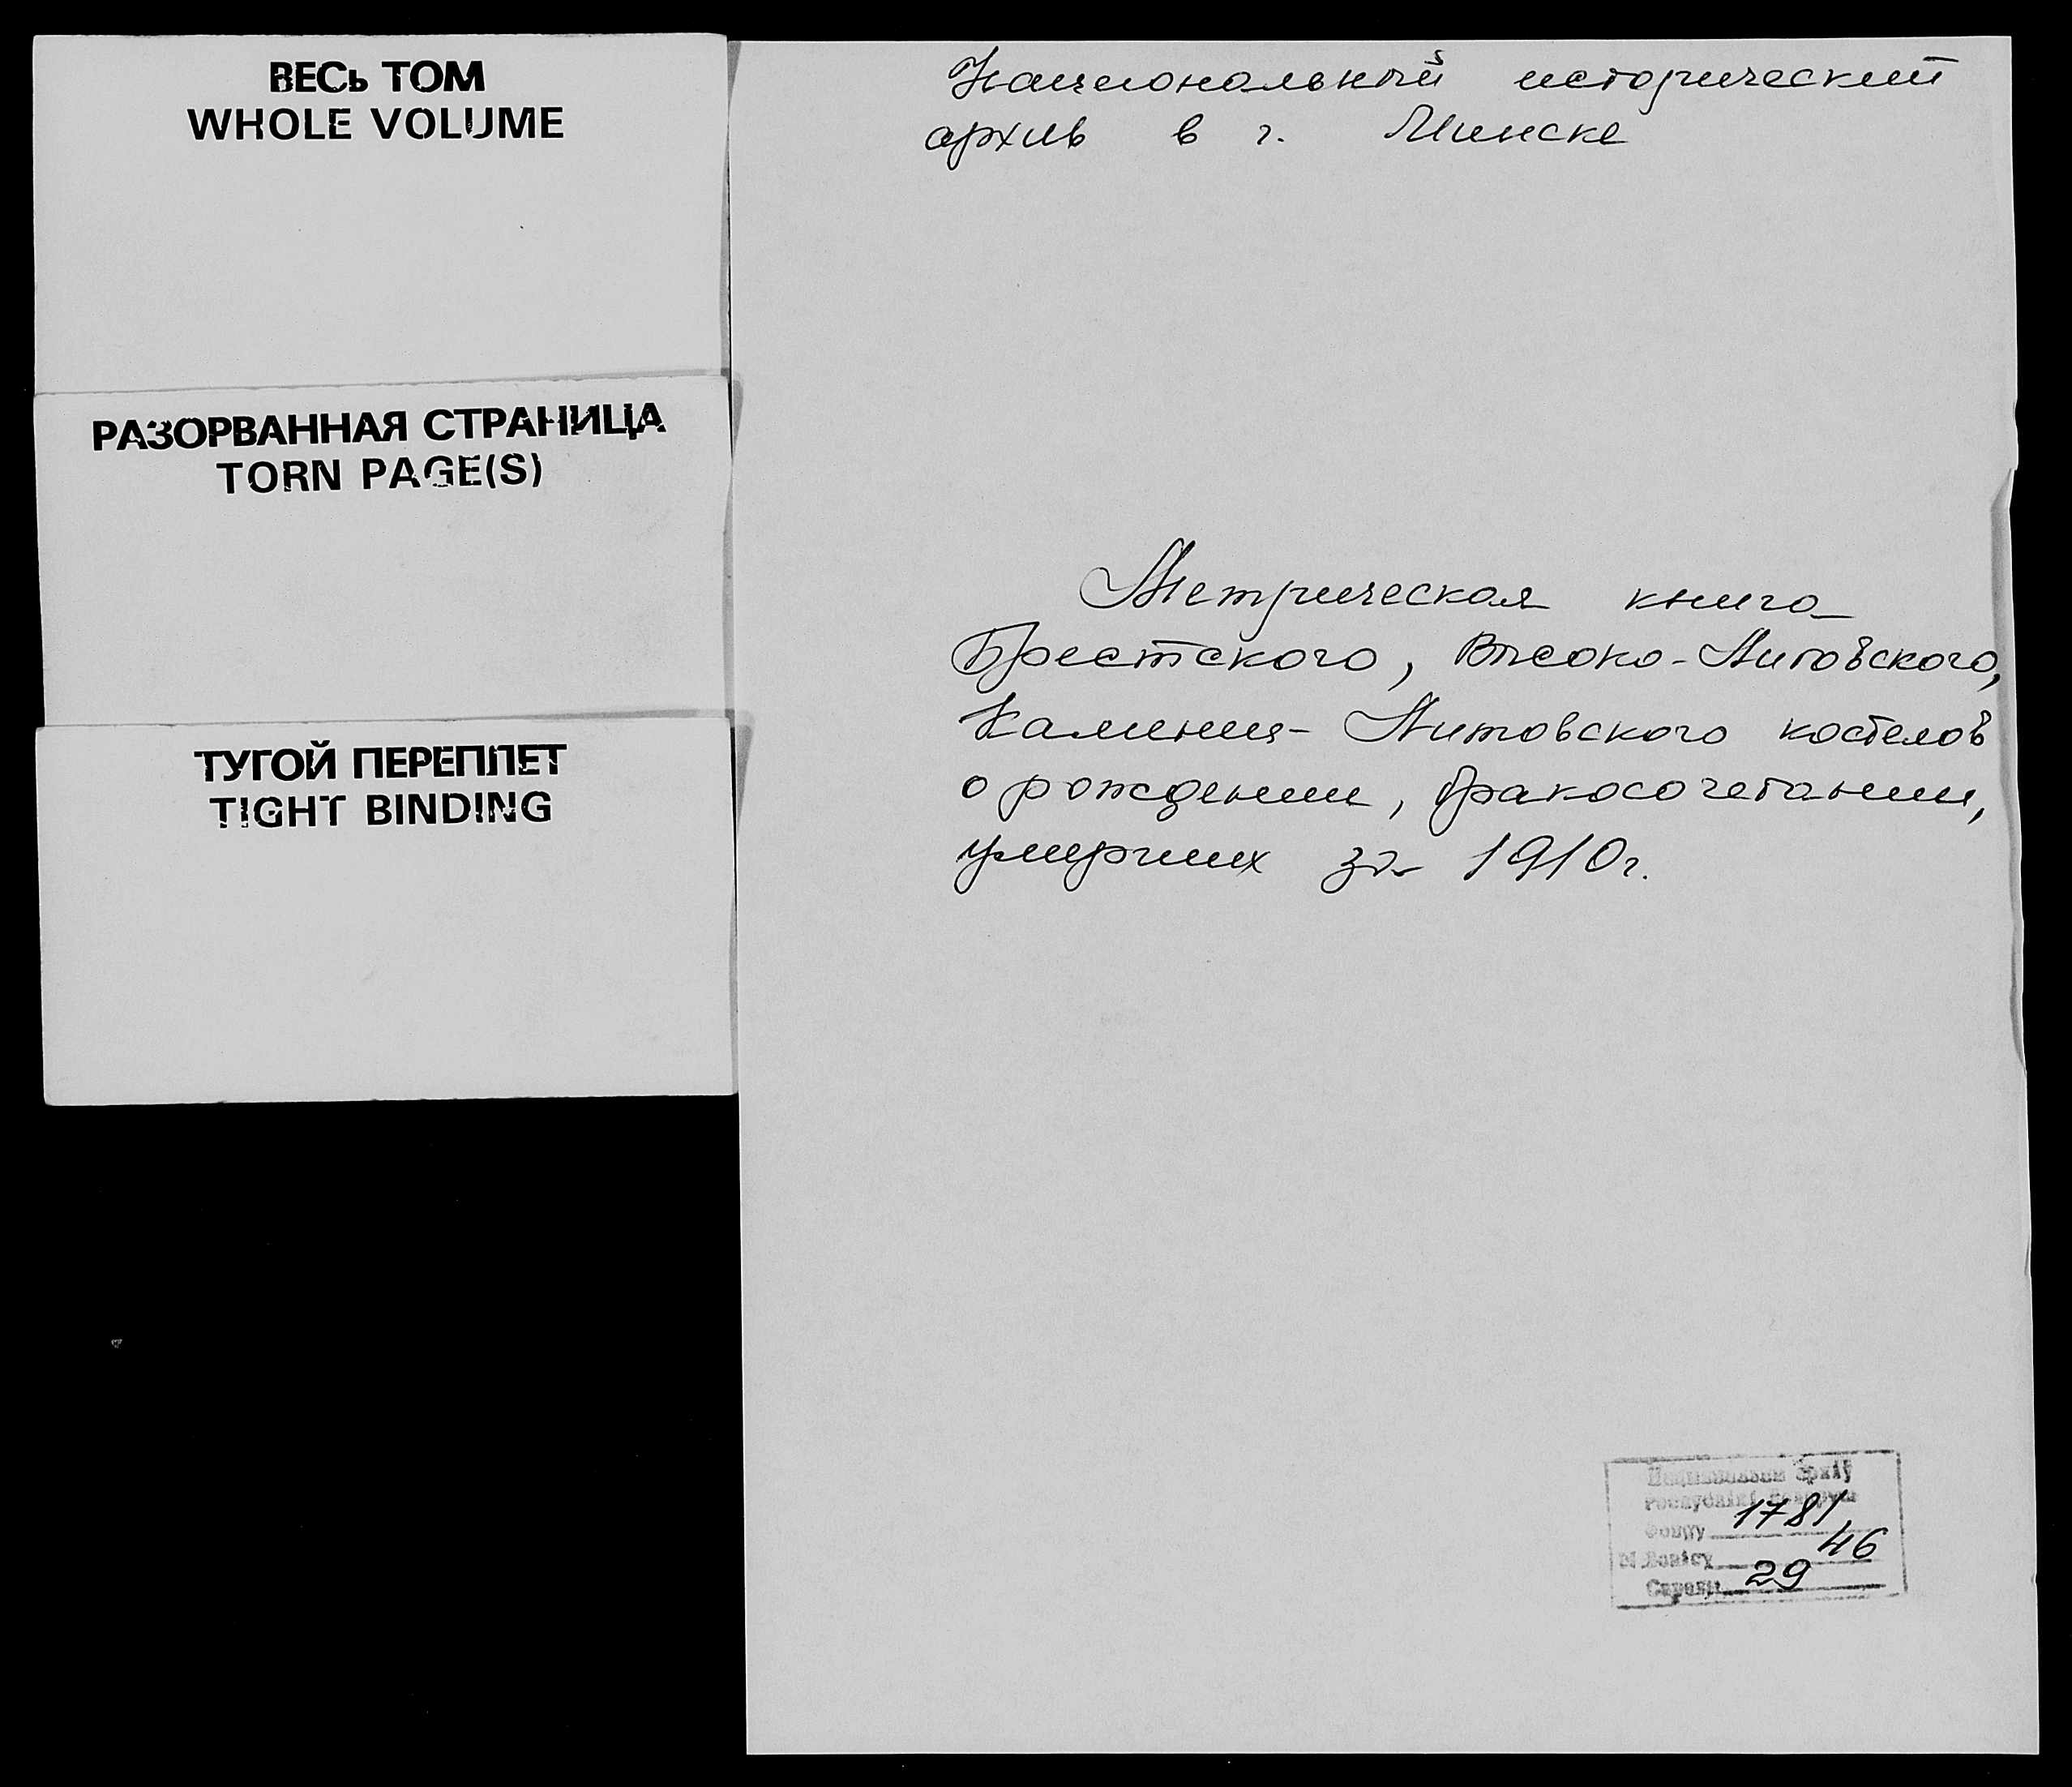 ВЕСЬ ТОМ
WHOLE VOLUME
РАЗОРВАННАЯ СТРАНИЦА
TORN PAGE(S)
ТУГОЙ ПЕРЕПЛЕТ
TIGHT BINDING
Национальный исторический
архив в г. Минске
Метрическая книга
Брестского, Высоко-Литовского,
Каменец- Литовского костелов
о рождении, бракосочетании,
умерших за 1910г.
Нацыянальны архіў
Рэспублікі Беларусь
Фонд 1781
№ Вопісу 46
Справа 29